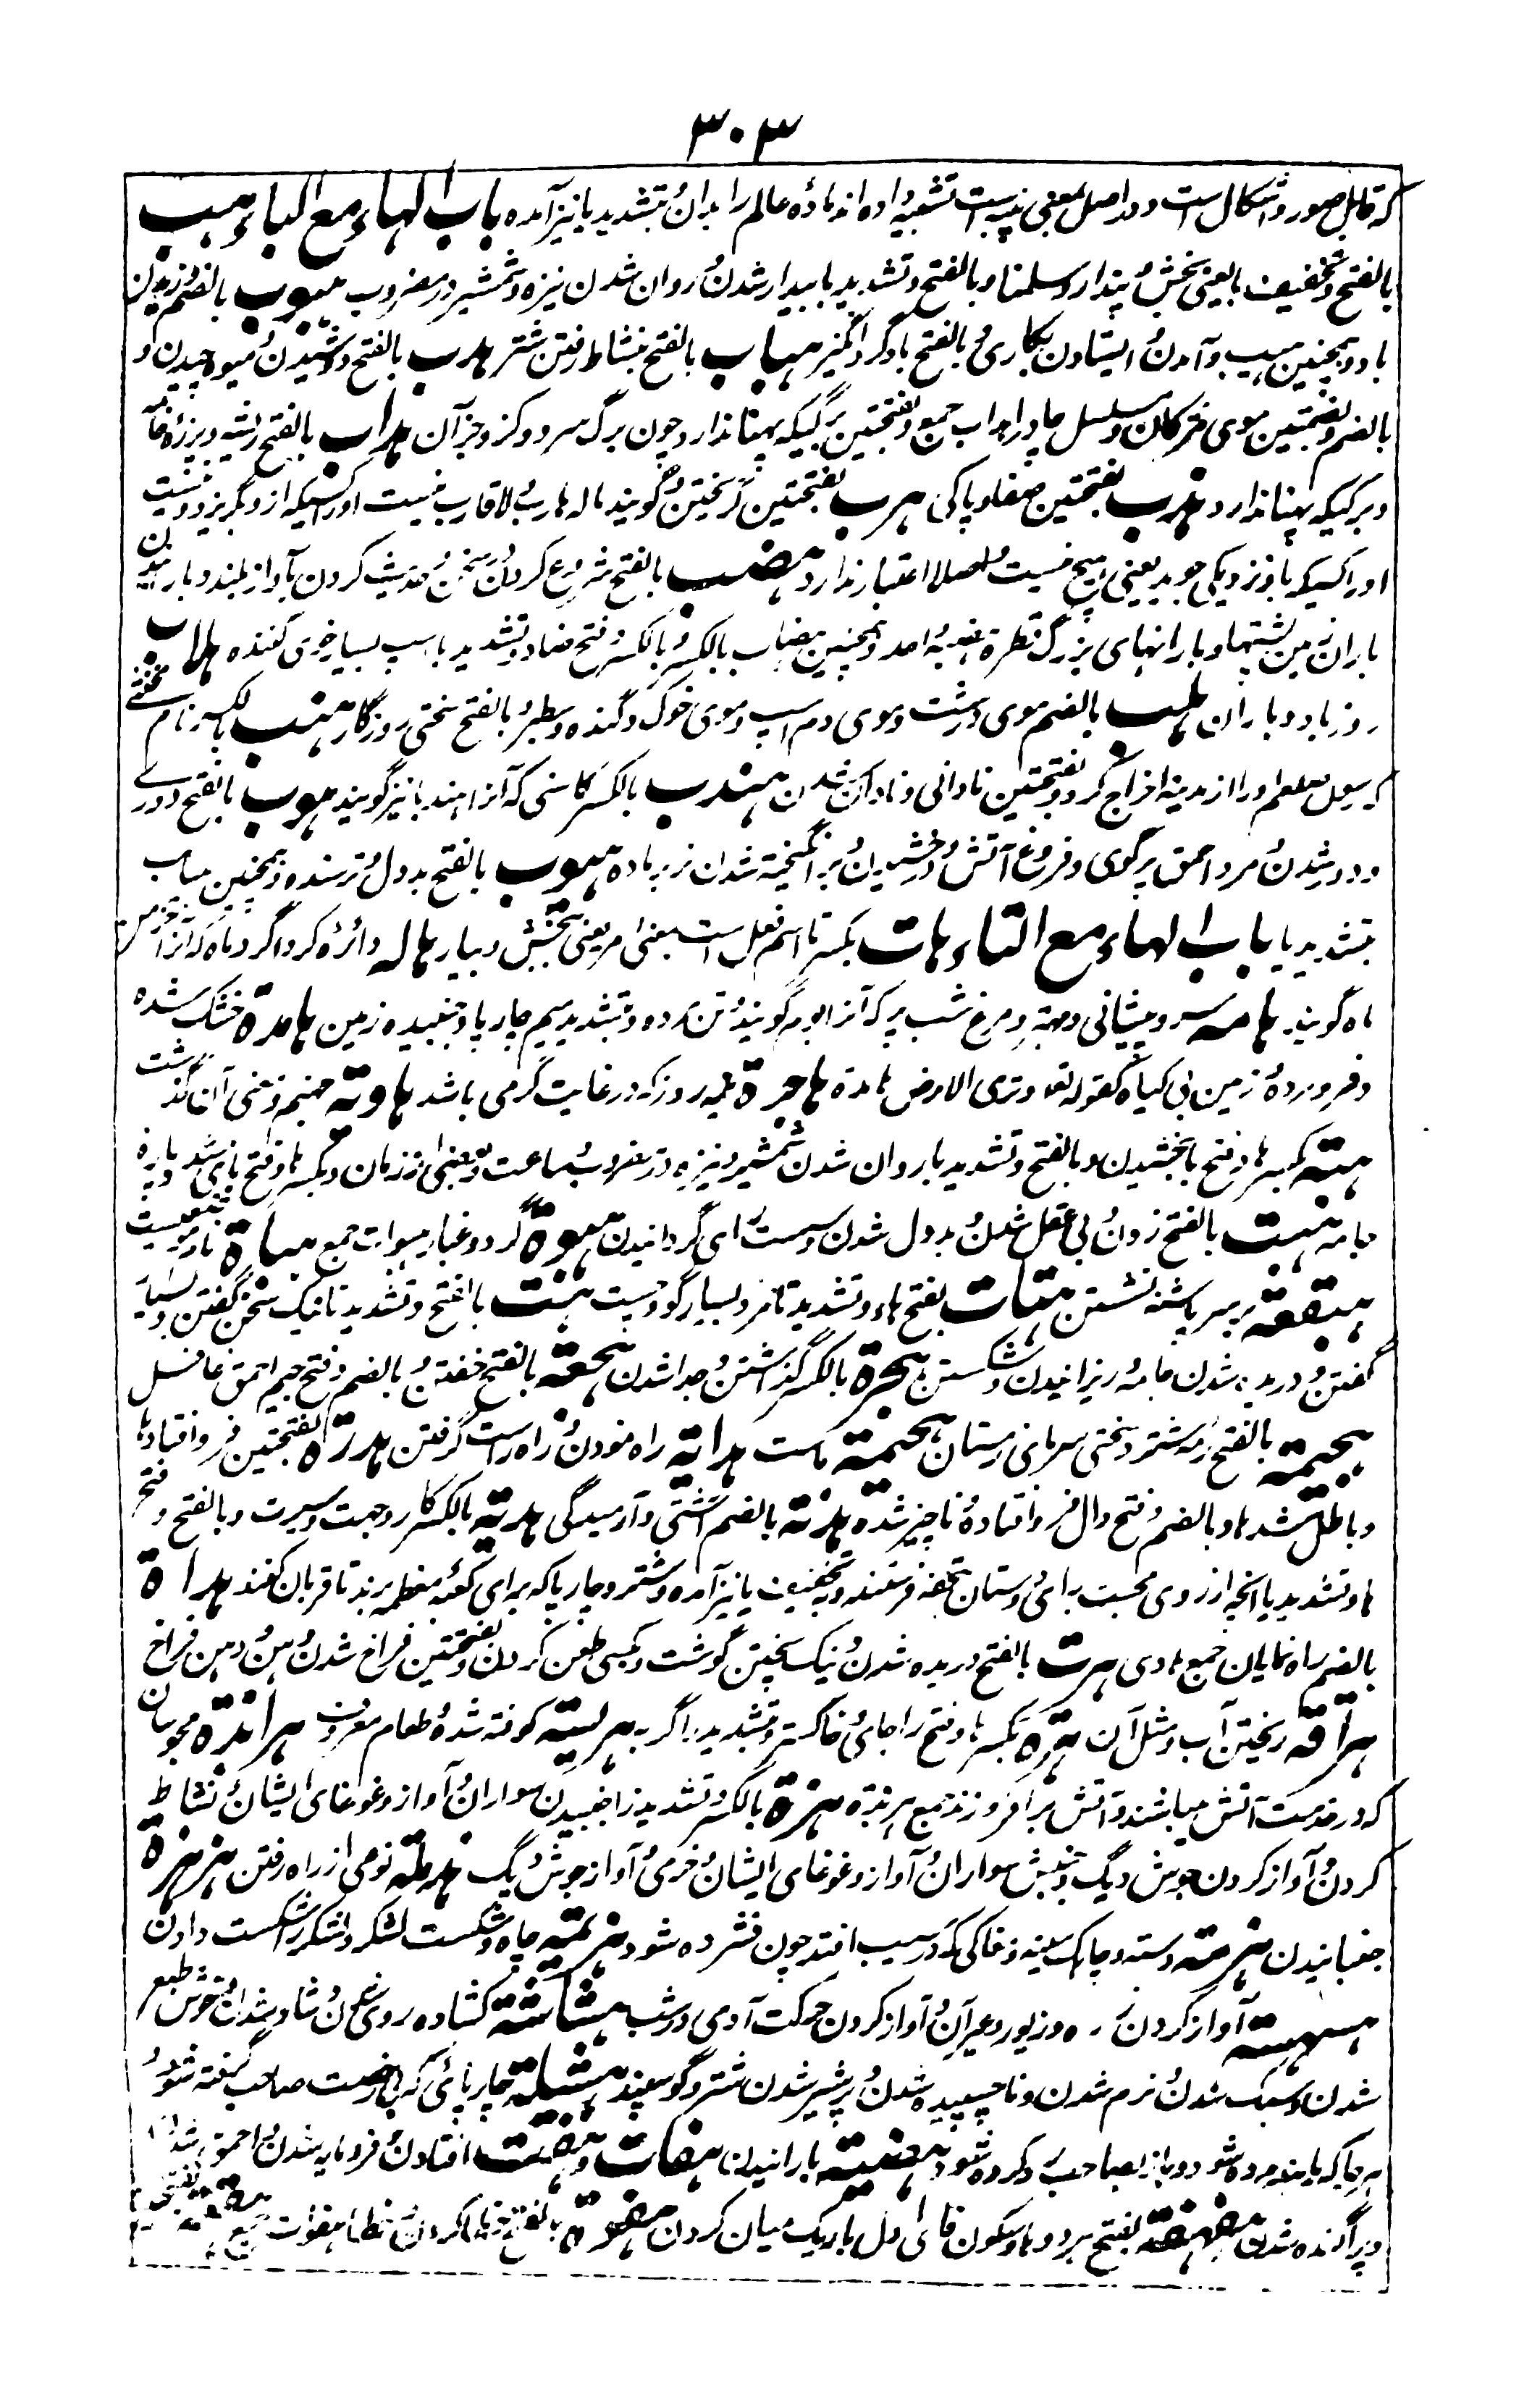 ۳۰۳
که قابل صور و اشکال است و در اصل بمعنی پنبه است تشبیه داده اند مادۀ عالم را بدان و بتشدید یا نیز آمده باب الهاء مع الباء هب
بالفتح و تخفیف با یعنی بخش و پندار و سلمنا و بالفتح و تشدید با بیدار شدن و روان شدن نیزه و شمشیر در مضروب هبوب بالضم وزیدن
باد و همچنین هبیب و آمدن و ایستادن بکاری و بالفتح باد گرد انگیز هباب بالفتح بنشاط رفتن شتر هدب بالفتح دوشیدن و میوه چیدن و
بالضم و بضمتین موی مژگان و سلسل چادر اهداب جمع و بفتحتین برگیکه پهنا ندارد چون برگ سرو و گز و جز آن هداب بالفتح ریشه و پرزۀ جامه
و برگیکه پهنا ندارد هذب بفتحتین صفا و پاکی هرب بفتحتین گریختن و گویند ماله هارب و لا قارب نیست او را کسیکه ازو گریزد و نیست
او را کسیکه باو نزدیکی جوید یعنی هیچ نیست و اصلا اعتبار ندارد هضب بالفتح شروع کردن سخن و حدیث کردن بآواز بلند و باریدن
باران و زمین پشتها و بارانهای بزرگ قطره هضبه واحد و همچنین هضاب بالکسر و بالکسر و فتح ضاد و تشدید با اسپ بسیار خوی کننده هلاب
روز باد و باران هلب بالضم موی درشت و موی دم اسپ و موی خوک و گنده و سطبر و بالفتح سختی روزگار هنب بالکسر نام مخنثی
که رسول صلعم او را از مدینه اخراج کرد و بفتحتین نادانی و نادان شدن هندب بالکسر کاسنی که آنرا هندبا نیز گویند هوب بالفتح دوری
و دور شدن و مرد احمق پرگوی و فروغ آتش و درخشیدن و برانگیخته شدن نر بر ماده هیوب بالفتح بددل و ترسنده و همچنین هیاب
بتشدید یا باب الهاء مع التاء هات بکسر تا اسم فعل است بمعنی امر یعنی بخش و بیار هاله دائره گرداگرد ماه که آنرا خرمن
ماه گویند هامه سر و پیشانی و مهتر و مرغ شب پر که آنرا بوم گویند و تن مرده و بتشدید میم چارپا و جنبیده زمین هامدة خشک شده
و فرو مردۀ زمین بی گیاه کقوله تعا و تری الارض هامدة هاجرة نیمه روز که در غایت گرمی باشد هاویه جهنم و معنی آن گذشت
هبة بکسر ها و فتح با بخشیدن و بالفتح و تشدید با روان شدن شمشیر و نیزه در مضروب و ساعت و بمعنی از زمان و بکسر ها و فتح بای مشدد پارۀ
جامه هبت بالفتح زدن و بی عقل شدن و بددل شدن و سست رای گردانیدن هبوة گرد و غبار هبوات جمع
هبنقعة بر سر پاشنه نشستن هتات بفتح ها و تشدید تا مرد بسیار گو و چست هت بالفتح و تشدید تا نیک سخن گفتن و بسیار
گفتن و دریده شدن جامه و ریزانیدن و شکستن هجرة بالکسر گذاشتن و جدا شدن هجعة بالفتح خفتن و بالضم و فتح جیم احمق غافل
هجمة بالفتح رمه شتر و سختی سرمای زمستان هجیمة ماست هدایة راه نمودن و راه راست گرفتن هدرة بفتحتین فرو افتادها
و باطل شدها و بالضم و فتح دال فرو افتادۀ ناچیز شده هدنة بالضم آشتی و آرمیدگی هدیة بالکسر کار و جهت و سیرت و بالفتح و فتح
ها و تشدید یا آنچه از روی محبت برای دوستان تحفه فرستند و بتخفیف یا نیز آمده و شتر و چارپا که برای کعبۀ معظمه برند تا قربان کنند هداة
بالضم راه نمایان جمع هادی هرت بالفتح دریده شدن و نیک پختن گوشت و بکسی طعن کردن و بفتحتین فراخ شدن دهن و دهن فراخ
هراقة ریختن آب و مثل آن هرة بکسر ها و فتح را جای خاکستر و بتشدید را گربه هریسة کوفته شده و طعام معروف هرابذة مجوسان
که در خدمت آتش میباشند و آتش برافروزند جمع هربذه هزة بالکسر و تشدید زا جنبیدن سواران و آواز و غوغای ایشان و نشاط
کردن و آواز کردن جوش دیگ و جنبش سواران و آواز و غوغای ایشان و خرمی و آواز جوش دیگ هذملة نوعی از راه رفتن هزهزة
جنبانیدن هزمة دسته و چاک سینه و مغاکی که در سیب افتد چون فشرده شود هزیمة چاه و شکست لشکر و لشکر را شکست دادن
هسهسة آواز کردن زره و زیور و غیر آن و آواز کردن حرکت آدمی در شب هشاشة گشاده روی شدن و شاد شدن و خوش طبع
شدن و سبک شدن و نرم شدن و ناچسپیده شدن و پرشیر شدن شتر و گوسپند هشیلة چارپائی که بی رخصت صاحب گرفته شود
هر جا که باشد برده شود و باز بصاحب رد کرده شود هضبة بارانیدن هفات و هفت افتادن و فرومایه شدن و احمق شدن
و پراگنده شدن هفهفة بفتح هر دو ها و سکون فای اول باریک میان کردن هفوة بالفتح خطا کردن و خطا هفوات جمع